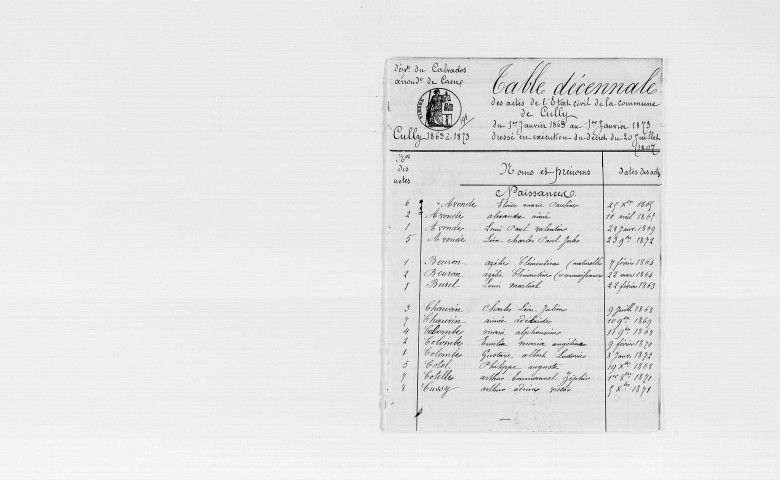 dépt. du Calvados
arrondt. de Caen
Table décennale
des actes de l'Etat civil de la commune
de Cully
du 1er Janvier 1863 au 1er Janvier 1873
dressé en exécution du Décret du 20 Juillet
1807
Cully 1863 à 1873
Nos des actes Noms et prénoms Dates des actes
Naissances
6 Avonde marie Pauline 25 Xbre 1865
2 Avonde alexandre aimé 10 avril 1865
1 Avonde Louis Paul Valentin 28 janv. 1869
5 Avonde Léon Charles Paul Jules 23 9bre 1872
1 Beuron azélie Clémentine (naturelle) 7 février 1864
2 Beuron azélie Clémentine (reconnaissance) 22 mars 1864
1 Burel Louis martial 22 février 1863
3 Chauvin Charles Léon Julien 9 Juillt 1863
7 Chauvin aimée adélaide 10 9bre 1869
4 Colombe marie alphonsine 11 9bre 1863
2 Colombe Emilia maria angélina 9 février 1870
1 Colombe Gustave albert Ludovic 8 Janv. 1872
5 Cotel Philippe auguste 19 Xbre 1868
7 Cotelle arthur Emmanuel 1er 8bre 1871
8 Cussy arthur victor 5 Xbre 1871